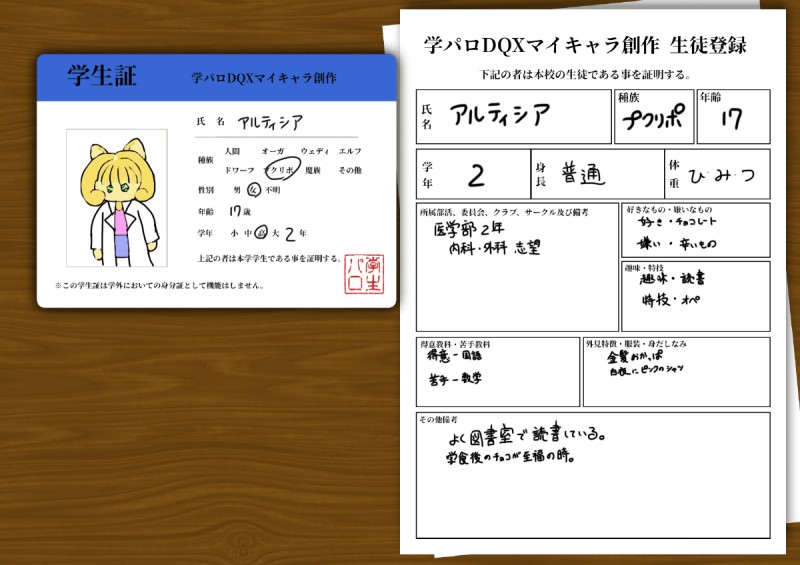 学生証 学パロDQXマイキャラ創作
氏 名 アルティシア
種族 人間 オーガ ウェディ エルフ
ドワーフ プクリポ 魔族 その他
性別 男 女 不明
年齢 17 歳
学年 小 中 高 大 2 年
上記の者は本学学生である事を証明する。
学生パロ
※この学生証は学外においての身分証として機能はしません。
学パロDQXマイキャラ創作 生徒登録
下記の者は本校の生徒である事を証明する。
氏名 アルティシア
種族 プクリポ
年齢 17
学年 2
身長 普通
体重 ひ・み・つ
所属部活、委員会、クラブ、サークル及び備考
医学部 2年
内科・外科 志望
好きなもの・嫌いなもの
好き・チョコレート
嫌い・辛いもの
趣味・特技
趣味・読書
特技・オペ
得意教科・苦手教科
得意ー国語
苦手ー数学
外見特徴・服装・身だしなみ
金髪おかっぱ
白衣にピンクのシャツ
その他備考
よく図書室で読書している。
学食後のチョコが至福の時。